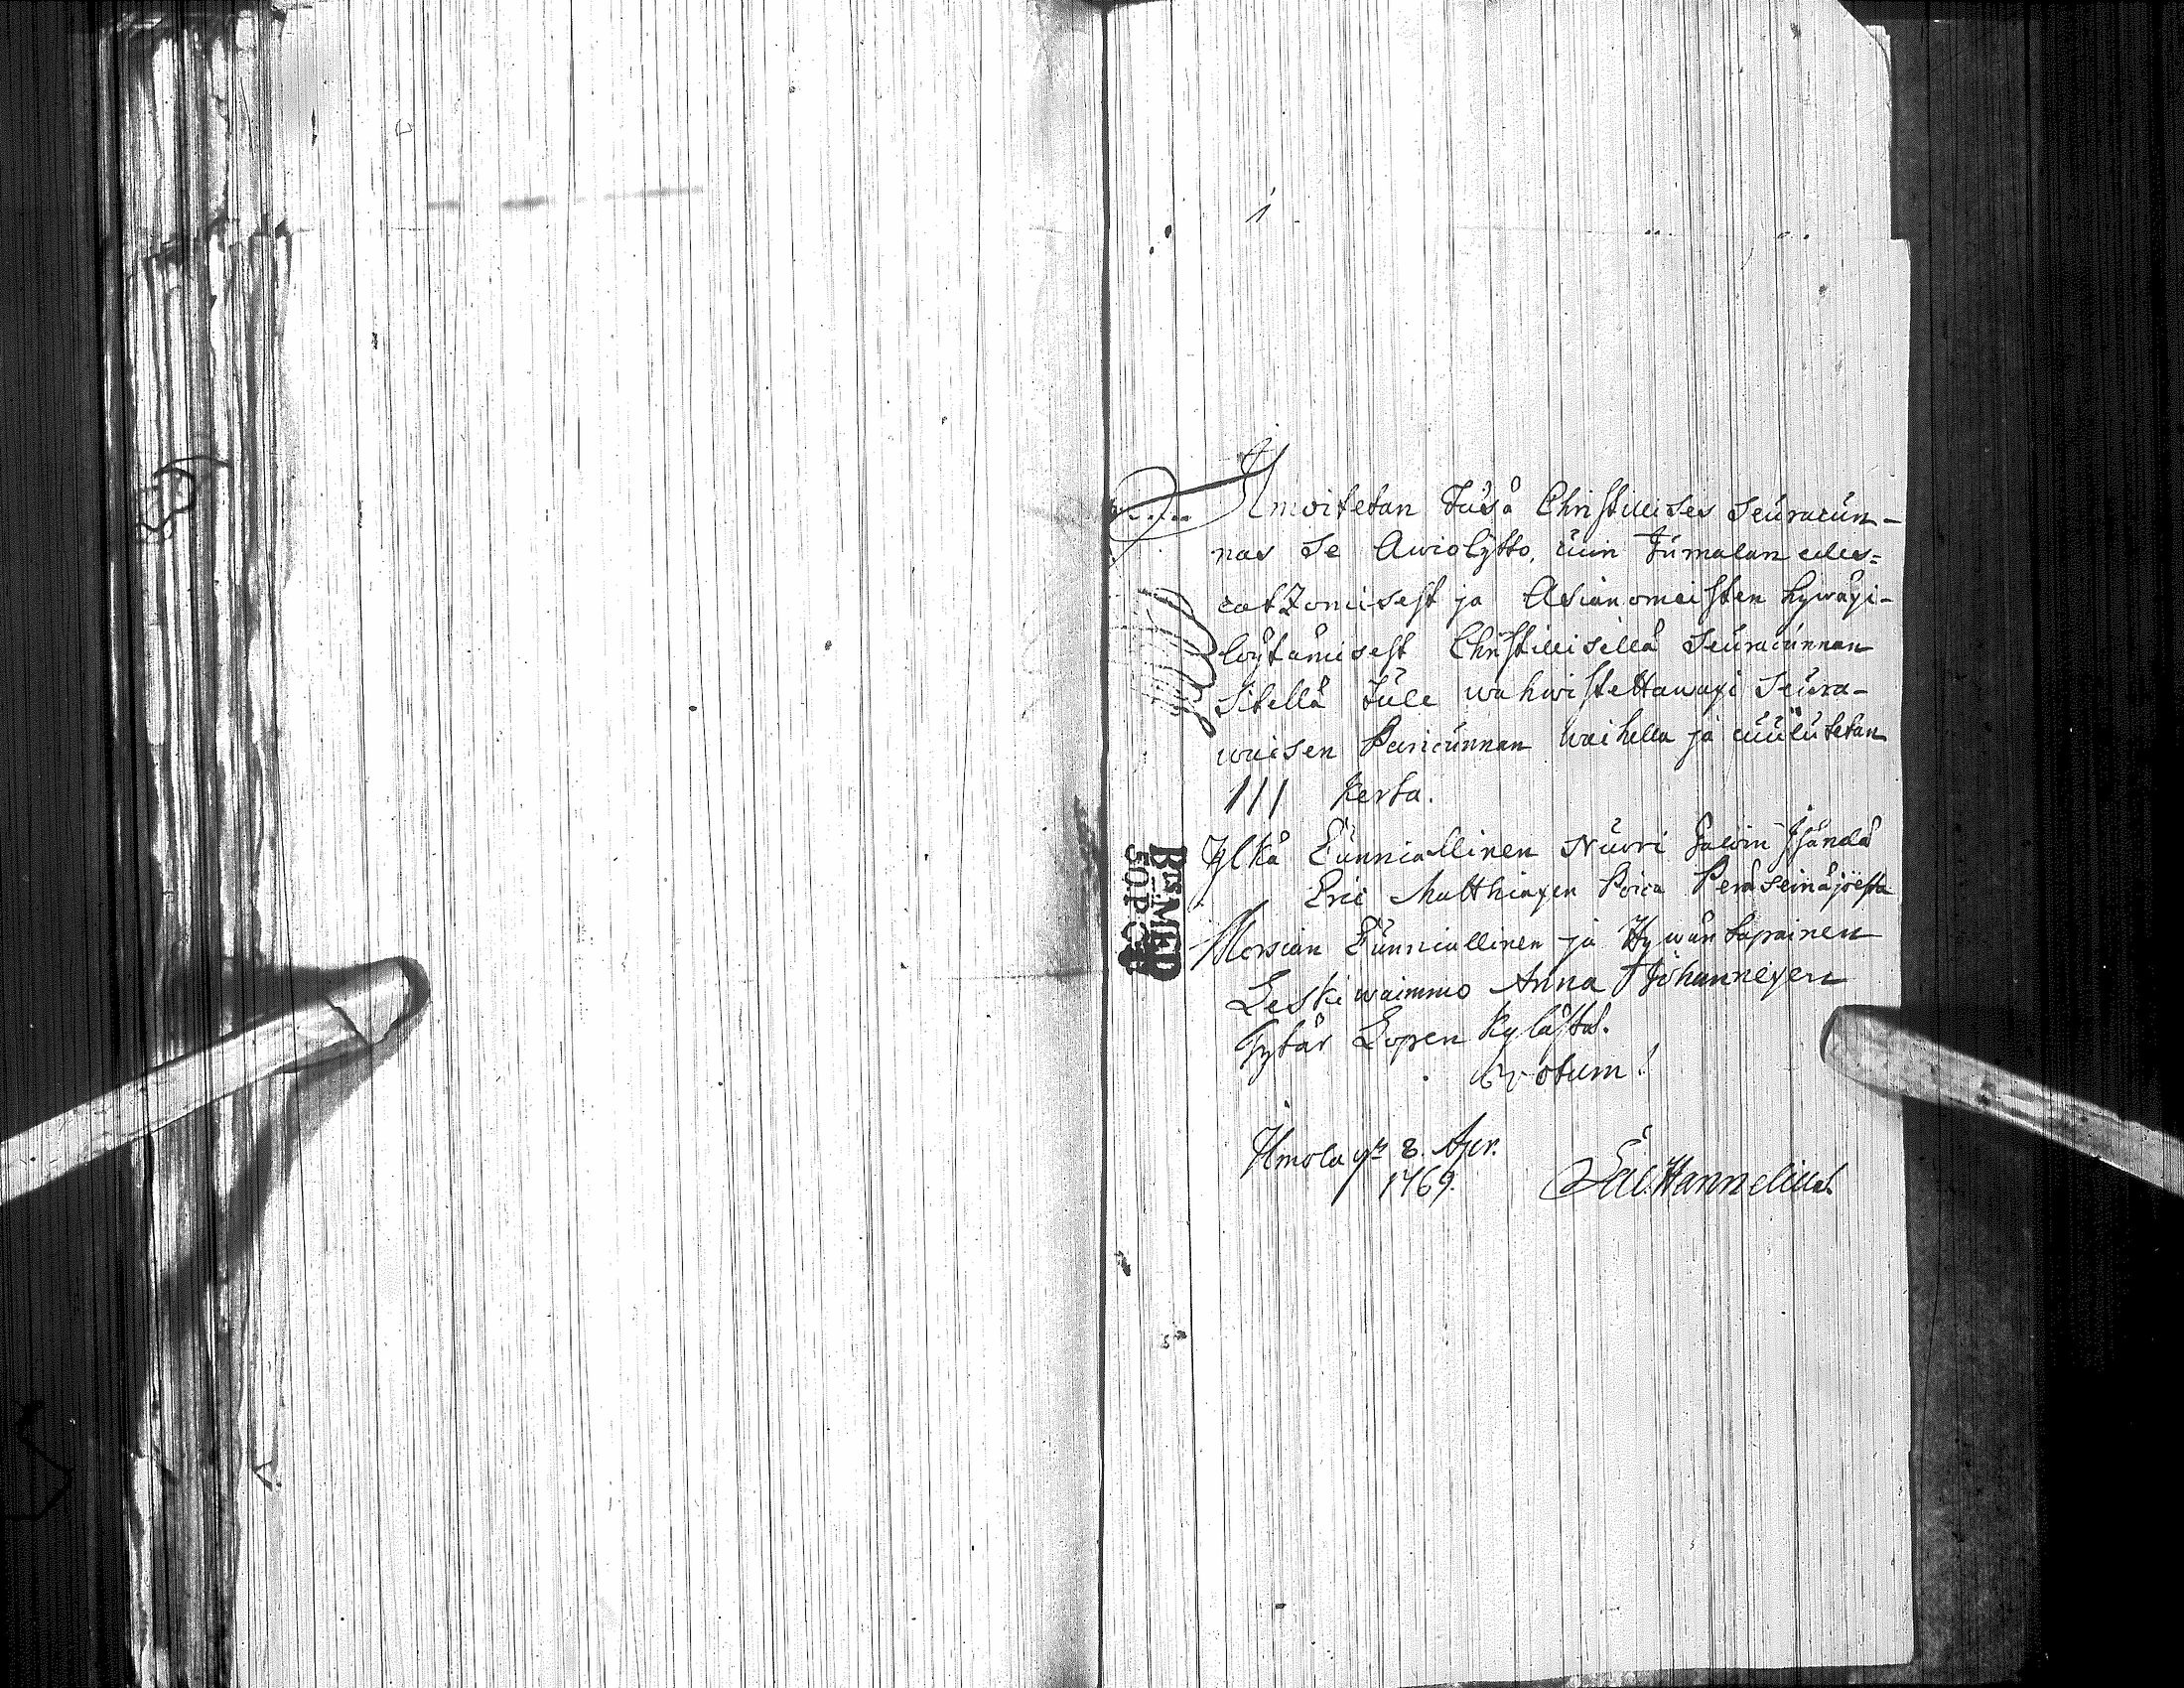 Ilmoitetan Tüsä Christillises Seüracün-
nas se Awiokytto, cuin Jumalan edes-
catzomisest ja Asianomaisten hywäxi-
löytämisest Christillisellä Seüracünnan
Sitellä tule wahwistettawaxi Seüra-
waisen Paricünnan waihella ja cüülütetan
III Kerta.
Ylkä Cünniallinen Nüori Isändä
Eric Matthiaxen Poica Peräseinäjoesta
Morsian Cünniallinen ja Hywäntapainen
Leskiwaimmo Anna Johannexen
Tytär Lopen Kylästä.
Votum!
Ilmola 8. Apr.
1769. Hannelius
BTS. MED
5. Ö. P. C